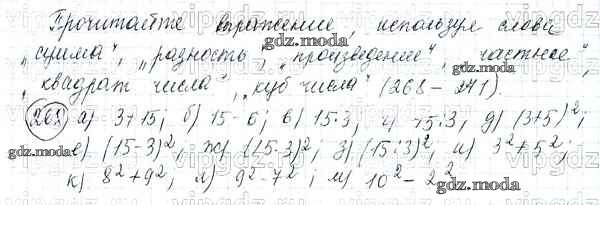 Прочитайте выражение, используя слова
„сумма", „разность", „произведение", „частное",
„квадрат числа", „куб числа" (268-271)
268 а) 3+15; б) 15-6; в) 15·3; г) 15:3; д) (3+5)²;
е) (15-3)²; ж) (15·3)²; з) (15:3)²; и) 3²+5²;
к) 8²+9²; л) 9²-7²; м) 10²-2²
gdz.moda
vipgdz.ru